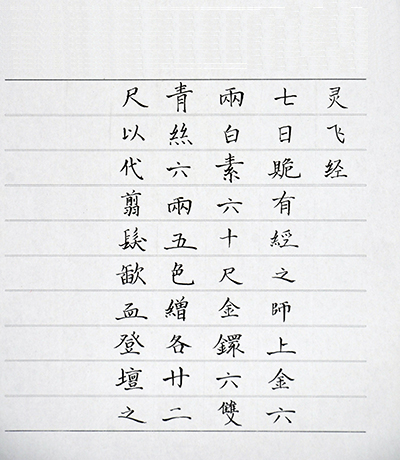 灵飞经
七日跪有經之師上金六
兩白素六十尺金鐶六雙
青絲六兩五色繒各廿二
尺以代翦髮歃血登壇之